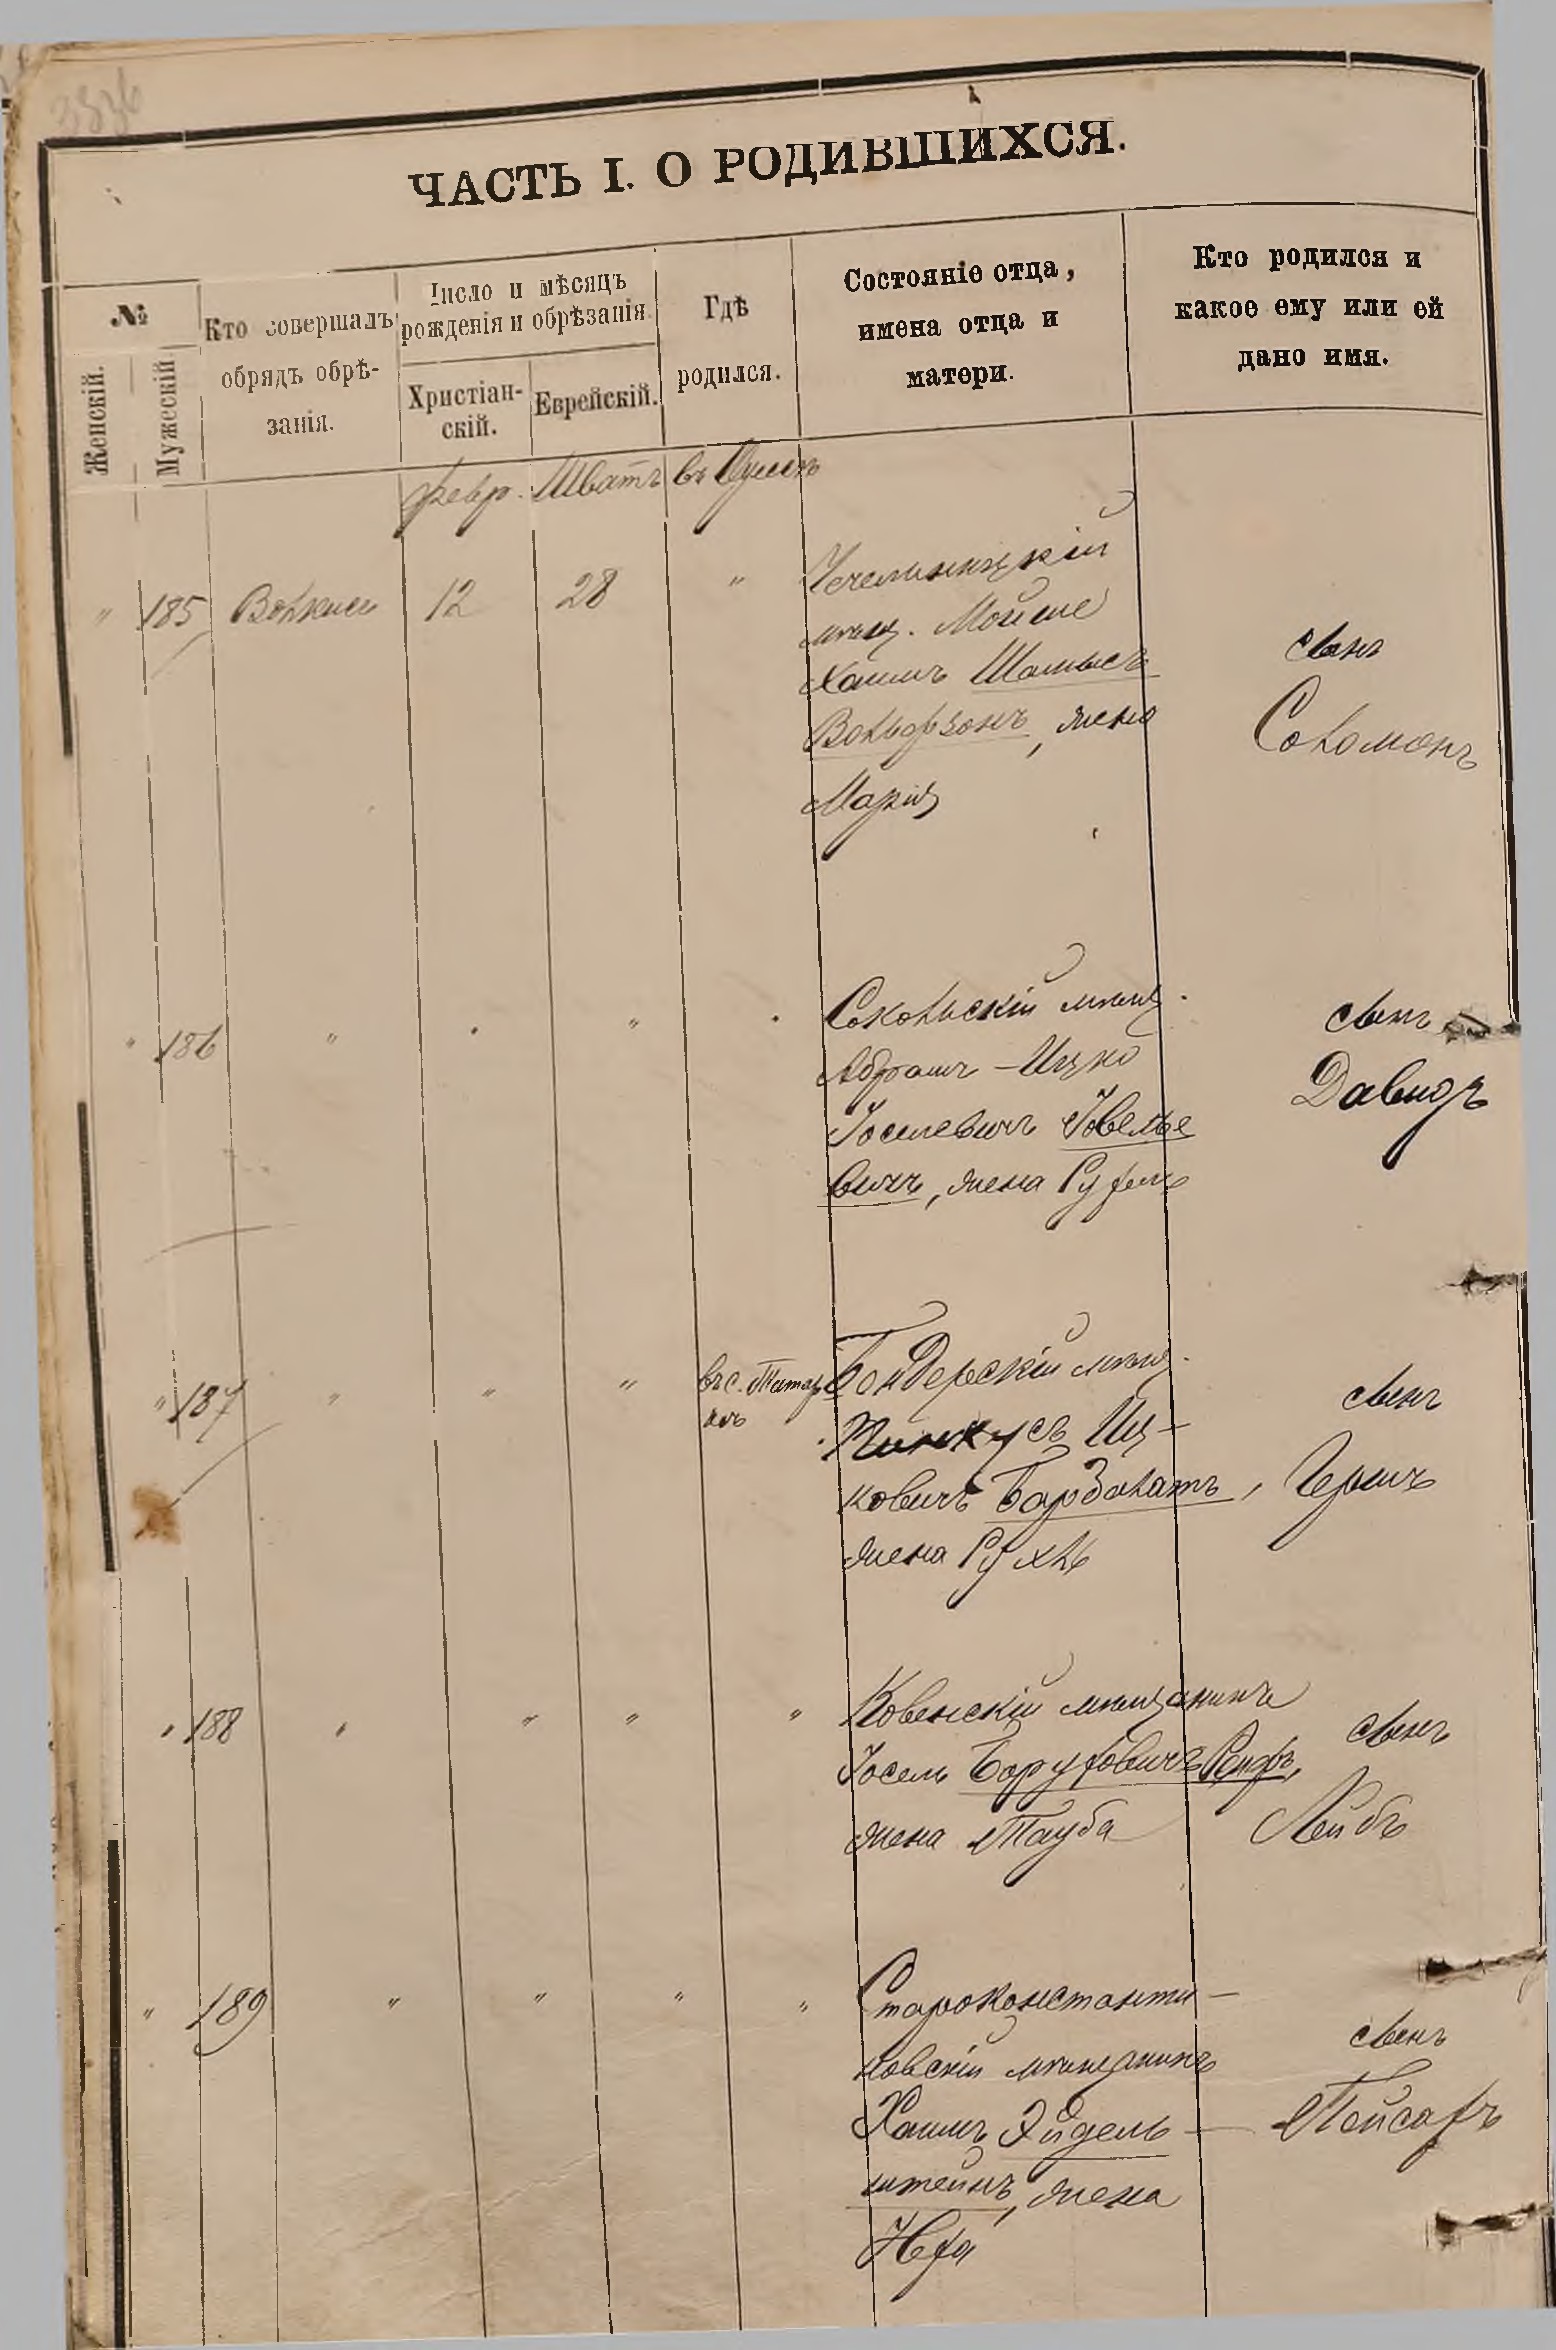 3836
ЧАСТЬ I. О РОДИВШИХСЯ.
№
Женскій.
Мужескій
Кто совершалъ
обрядъ обрѣ-
занія.
Число и мѣсяцъ
рожденія и обрѣзанія.
Христіан-
скій.
Еврейскій.
Гдѣ
родился.
Состояніе отца,
имена отца и
матери.
Кто родился и
какое ему или ей
дано имя.
февр. Шватъ въ Одессѣ
" 185 12 28 "
мѣщ. Мойше
Хаимъ Шомысъ
Вольфзонъ, жена
Марія
сынъ
Соломонъ
" 186 " " " "
Сокольскій мѣщ.
Абрамъ-Ицко
Іоселевичъ Говелье
вичъ, жена
сынъ
Давидъ
" 187 " " " въ с. Татар
кѣ
Бендерскій мѣщ.
Пинкусъ Иц-
ковичъ, жена Рухль
сынъ
Гершъ
" 188 " " " "
Ковенскій мѣщанинъ
Іосель Боруховичъ
жена Тауба
сынъ
Лейбъ
" 189 " " " "
Староконстанти-
новскій мѣщанинъ
Хаимъ Эйдель-
штейнъ, жена
Неха
сынъ
Пейсахъ